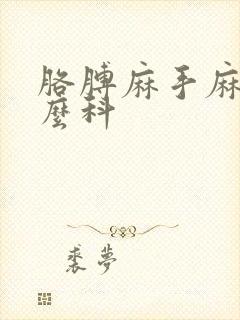 胳膊麻手麻
麽科
裘夢